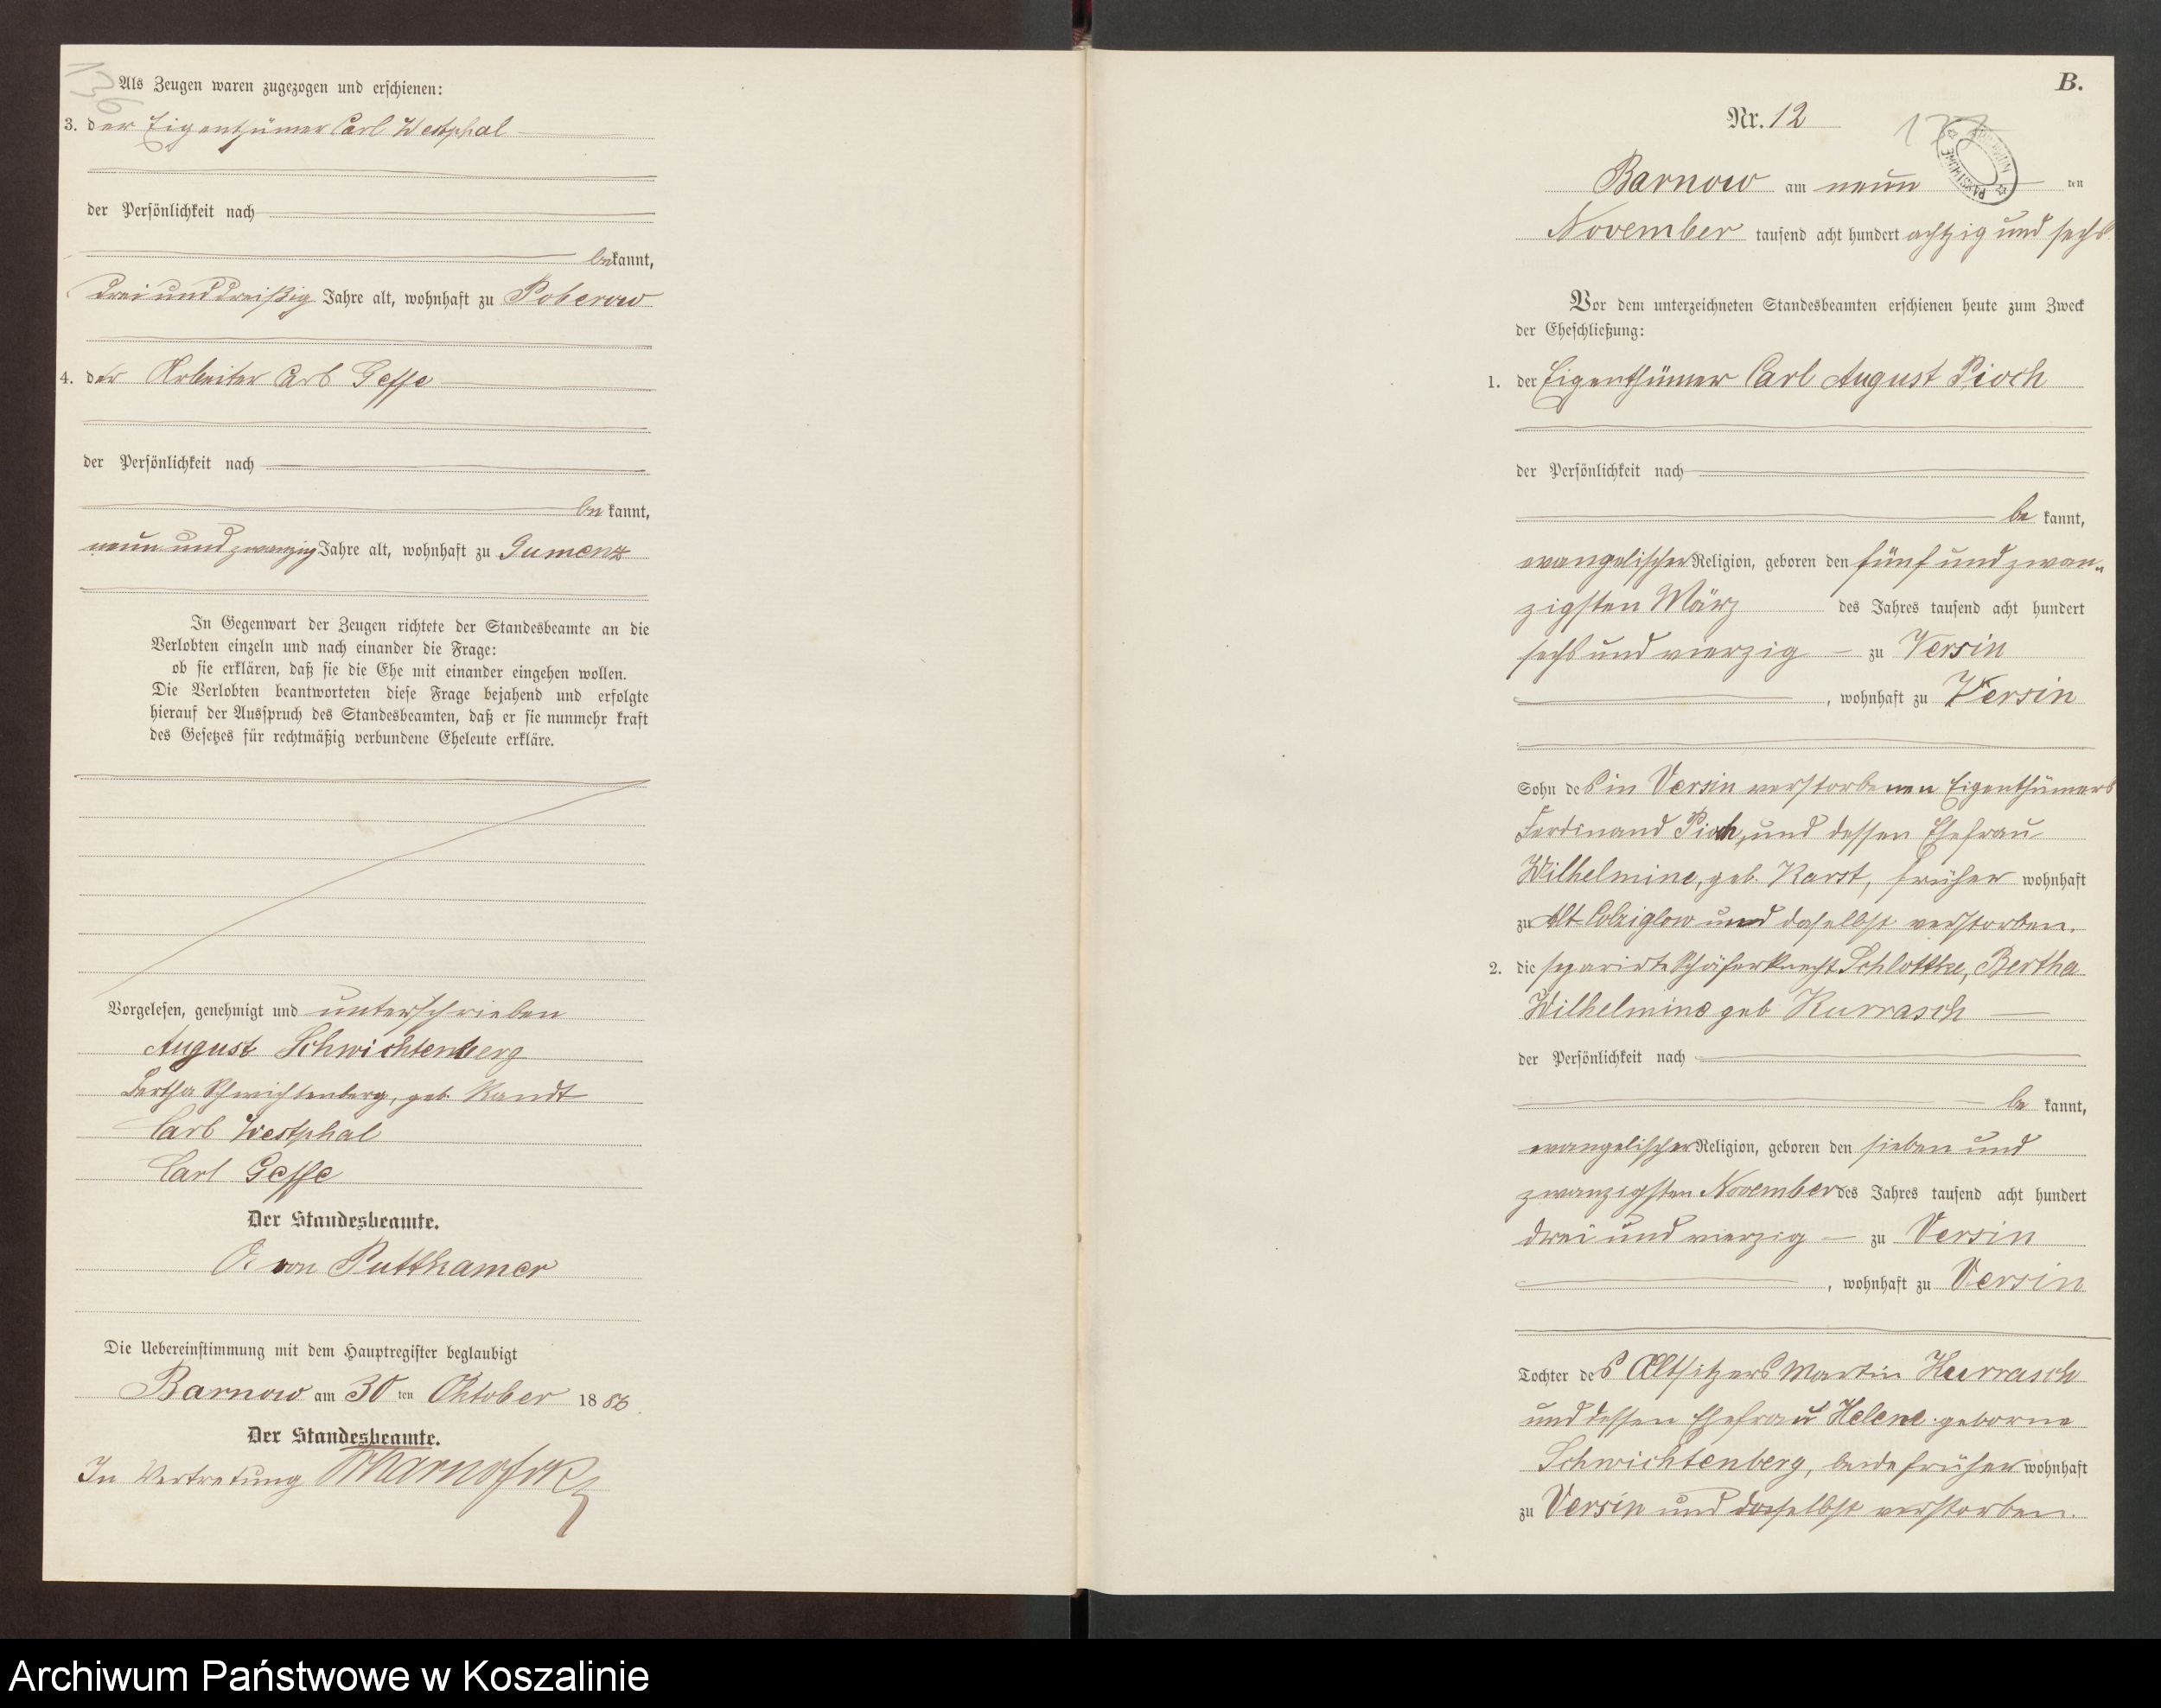 Als Zeugen waren zugezogen und erschienen:
3. der Eigenthümer Carl Westphal
der Persönlichkeit nach
bekannt,
drei und dreißig Jahre alt, wohnhaft zu Poberow
4. der Arbeiter Carl Gesse
der Persönlichkeit nach
be kannt,
neun und zwanzig Jahre alt, wohnhaft zu Gumenz
In Gegenwart der Zeugen richtete der Standesbeamte an die
Verlobten einzeln und nach einander die Frage:
ob sie erklären, daß sie die Ehe mit einander eingehen wollen.
Die Verlobten beantworteten diese Frage bejahend und erfolgte
hierauf der Ausspruch des Standesbeamten, daß er sie nunmehr kraft
des Gesetzes für rechtmäßig verbundene Eheleute erkläre.
Vorgelesen, genehmigt und unterschrieben
August Schwichtenberg
Bertha Schwichtenberg, geb. Randt
Carl Westphal
Carl Gesse
Der Standesbeamte.
von Puttkamer
Die Uebereinstimmung mit dem Hauptregister beglaubigt
Barnow am 30 ten Oktober 1886.
Der Standesbeamte.
In Vertretung
B.
Nr. 12
Barnow am neun ten
November tausend acht hundert achtzig und sechs
Vor dem unterzeichneten Standesbeamten erschienen heute zum Zweck
der Eheschließung:
1. der Eigenthümer Carl August Pioch
der Persönlichkeit nach
be kannt,
evangelischer Religion, geboren den fünf und zwan-
zigsten März des Jahres tausend acht hundert
sechs und vierzig zu Versin
, wohnhaft zu Versin
Sohn des in Versin verstorbenen Eigenthümers
Ferdinand Pioch, und dessen Ehefrau
Wilhelmine, geb. Karst, früher wohnhaft
zu Alt Colziglow und daselbst verstorben.
2. die separirte Schäferknecht Schlottke, Bertha
Wilhelmine geb Kurrasch
der Persönlichkeit nach
be kannt,
evangelischer Religion, geboren den sieben und
zwanzigsten November des Jahres tausend acht hundert
drei und vierzig zu Versin
, wohnhaft zu Versin
Tochter des Altsitzers Martin Kurrasch
und dessen Ehefrau Helene geborne
Schwichtenberg, beide früher wohnhaft
zu Versin und daselbst verstorben.
Archiwum Państwowe w Koszalinie